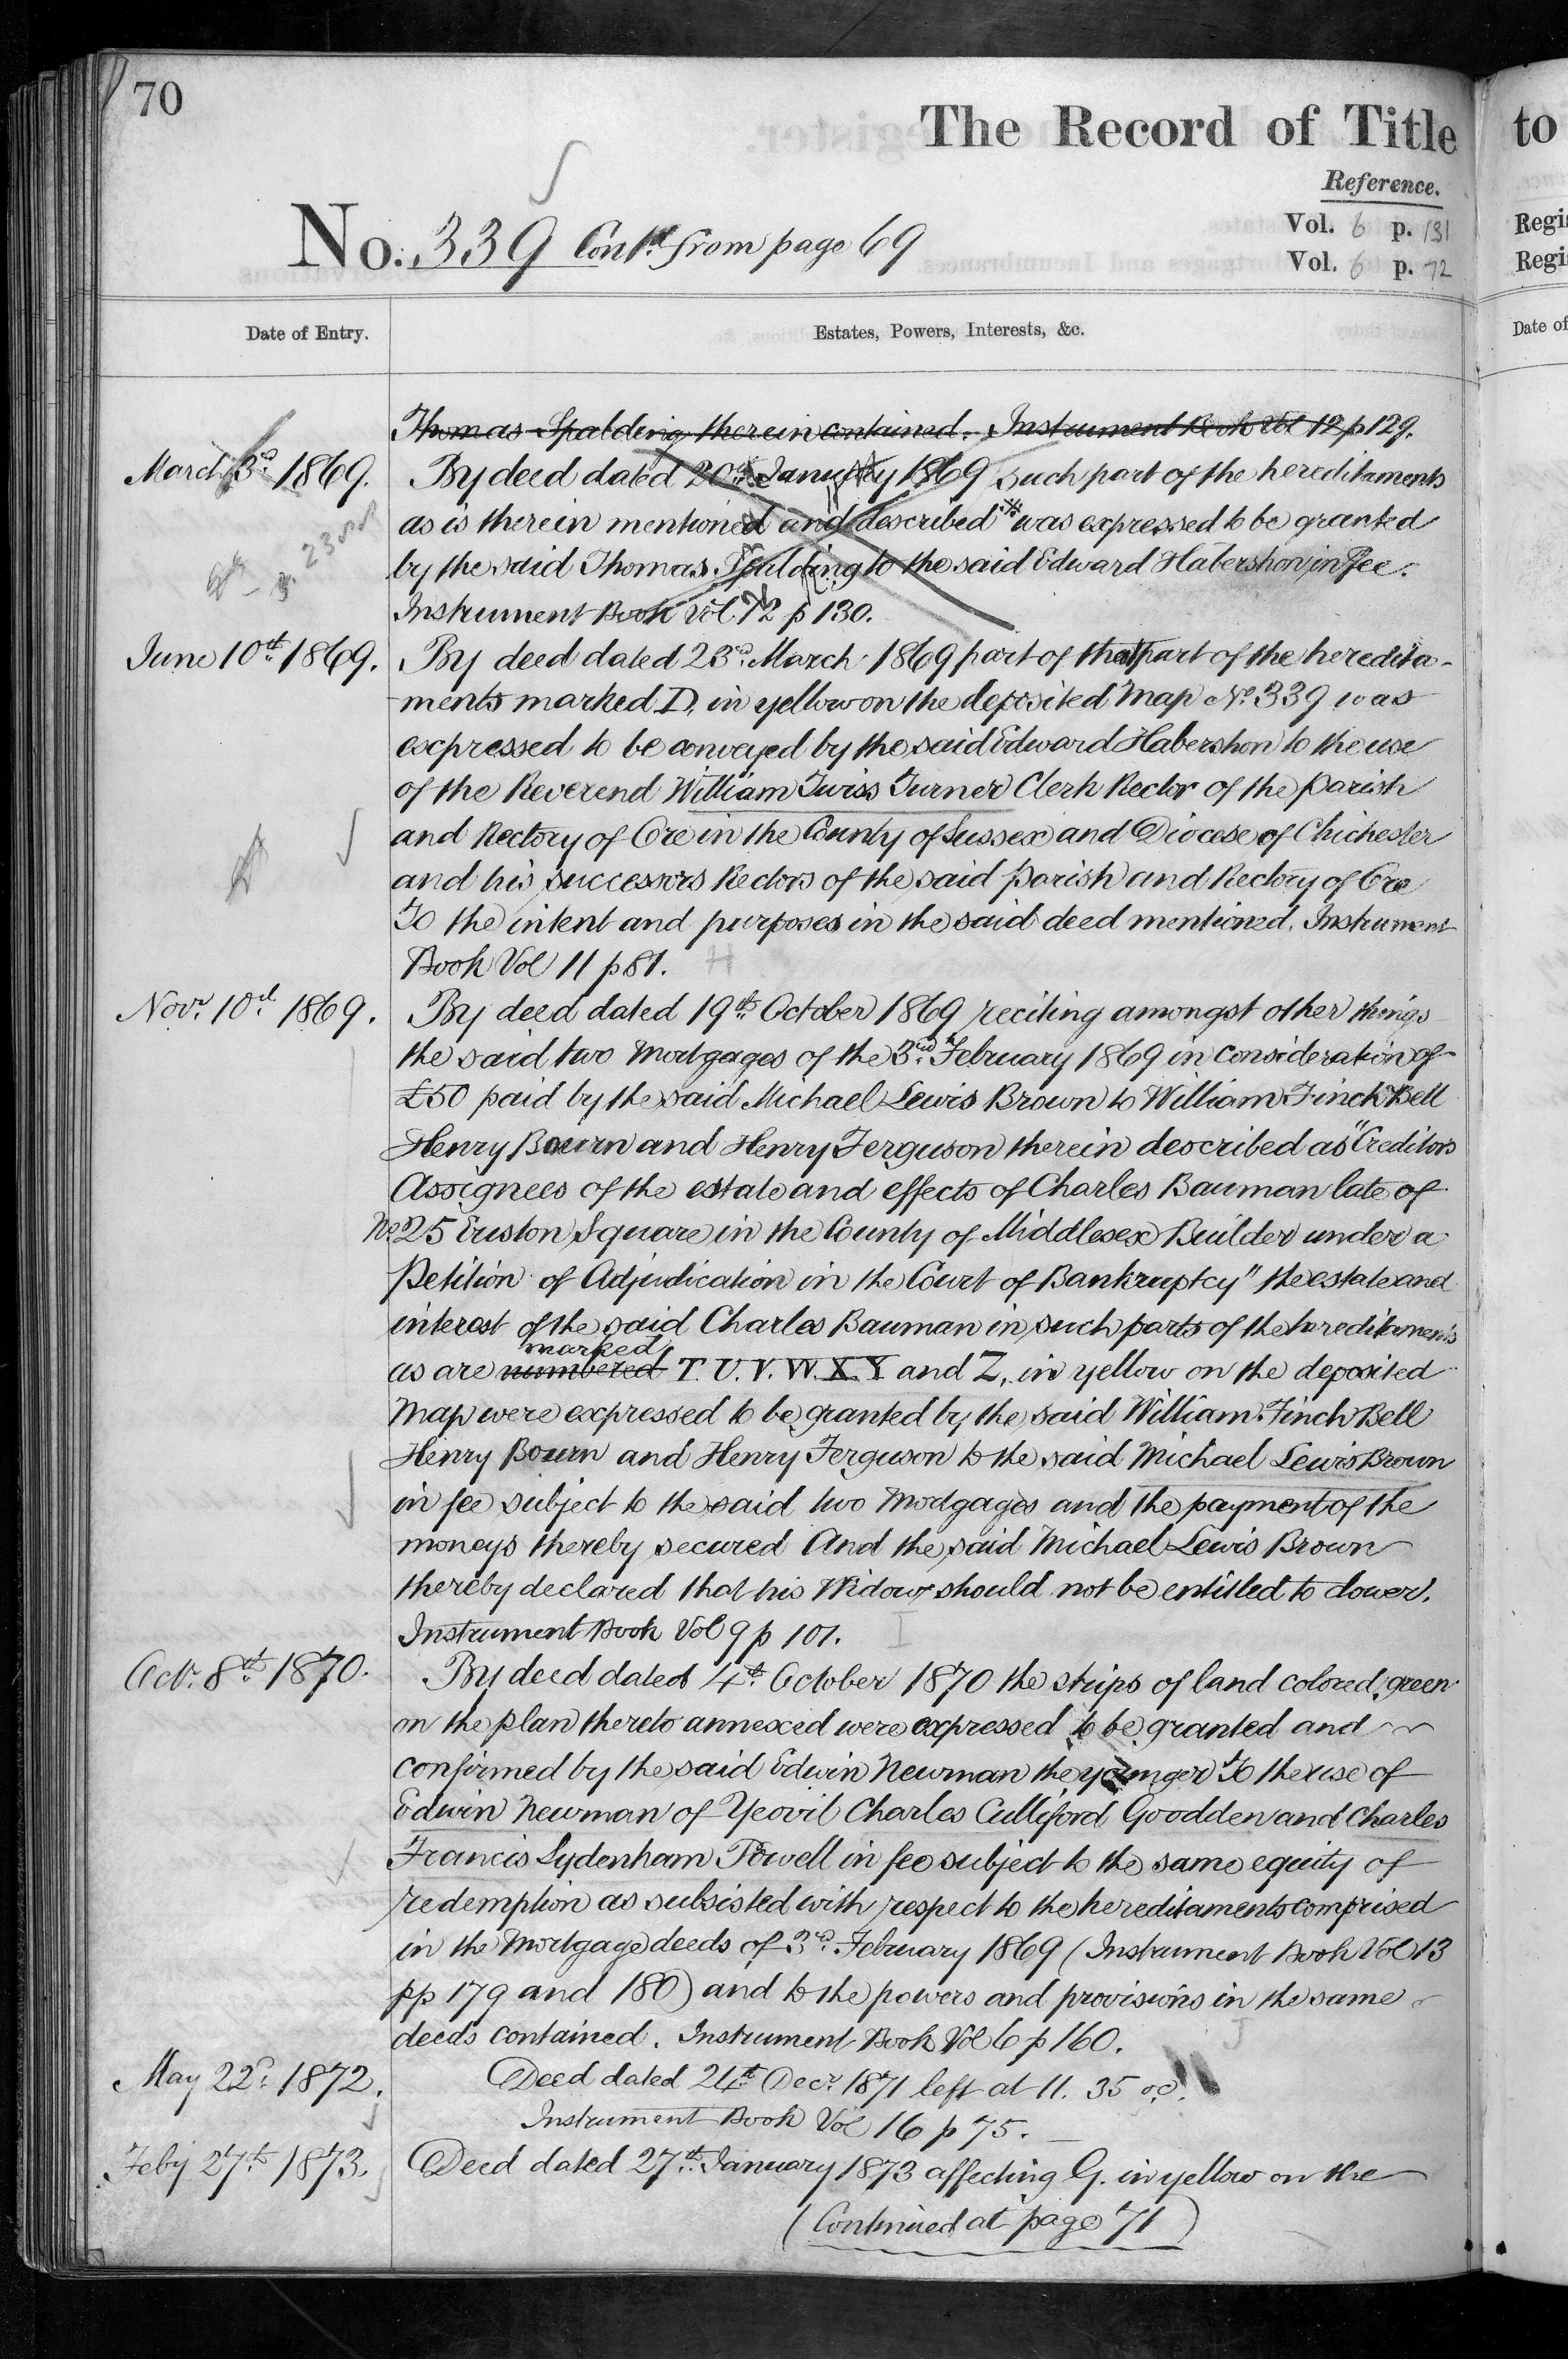 70
The Record of Title
Reference.
Vol. 6 p. 131
Vol. 6 p. 72
No. 339 Contd. from page 69
Date of Entry.
Estates, Powers, Interests, &c.
Thomas Spalding therein contained. Instrument Book Vol 12 p 129.
March 3d. 1869. By deed dated 20th. January 1869 such part of the hereditaments
as is therein mentioned and described was expressed to be granted
by the said Thomas Spalding to the said Edward Habershon in fee.
Instrument Book Vol. 12 p 130.
June 10th. 1869. By deed dated 23d. March 1869 part of that part of the heredita-
-ments marked D. in yellow on the deposited Map No. 339 was
expressed to be conveyed by the said Edward Habershon to the use
of the Reverend William Twiss Turner Clerk Rector of the Parish
and Rectory of Ore in the County of Sussex and Diocese of Chichester
and his successors Rectors of the said Parish and Rectory of Ore
To the intent and purposes in the said deed mentioned. Instrument
Book Vol 11 p 81. H
Novr. 10th. 1869. By deed dated 19th. October 1869 reciting amongst other things
the said two Mortgages of the 3rd. February 1869 in consideration of
£50 paid by the said Michael Lewis Brown to William Finch Bell
Henry Bourn and Henry Ferguson therein described as "Creditors
Assignees of the estate and effects of Charles Bauman late of
No. 25 Euston Square in the County of Middlesex Builder under a
Petition of Adjudication in the Court of Bankruptcy" the estate and
interest of the said Charles Bauman in such parts of the hereditaments
marked
as are numbered T. U. V. W. X. Y and Z, in yellow on the deposited
Map were expressed to be granted by the said William Finch Bell
Henry Bourn and Henry Ferguson to the said Michael Lewis Brown
in fee subject to the said two Mortgages and the payment of the
moneys thereby secured And the said Michael Lewis Brown
thereby declared that his Widow should not be entitled to dower.
Instrument Book Vol 9 p 101. I
Octr. 8th. 1870. By deed dated 4th. October 1870 the strips of land colored green
on the plan thereto annexed were expressed to be granted and
confirmed by the said Edwin Newman the younger To the use of
Edwin Newman of Yeovil Charles Culliford Goodden and Charles
Francis Sydenham Powell in fee subject to the same equity of
redemption as subsisted with respect to the hereditaments comprised
in the Mortgage deeds of 3rd. February 1869 (Instrument Book Vol 13
pp 179 and 180) and to the powers and provisions in the same
deeds contained. Instrument Book Vol 6 p 160. J
May 22d. 1872. Deed dated 24th. Decr. 1871 left at 11. 35 oc.
Instrument Book Vol 16 p 75.
Feby 27th. 1873. Deed dated 27th. January 1873 affecting G. in yellow on the
(Continued at page 71)
to
Regi
Regi
Date of